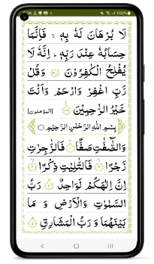 لَا بُرْهَانَ لَهٗ بِهٖ ۙ فَاِنَّمَا
حِسَابُهٗ عِنْدَ رَبِّهٖ ؕ اِنَّهٗ لَا
يُفْلِحُ الْكٰفِرُوْنَ وَقُلْ
رَّبِّ اغْفِرْ وَارْحَمْ وَاَنْتَ
خَيْرُ الرّٰحِمِيْنَ
بِسْمِ اللّٰهِ الرَّحْمٰنِ الرَّحِيْمِ
وَالصّٰٓفّٰتِ صَفًّا فَالزّٰجِرٰتِ
زَجْرًا فَالتّٰلِيٰتِ ذِكْرًا
اِنَّ اِلٰهَكُمْ لَوَاحِدٌ رَبُّ
السَّمٰوٰتِ وَالْاَرْضِ وَمَا
بَيْنَهُمَا وَرَبُّ الْمَشَارِقِ